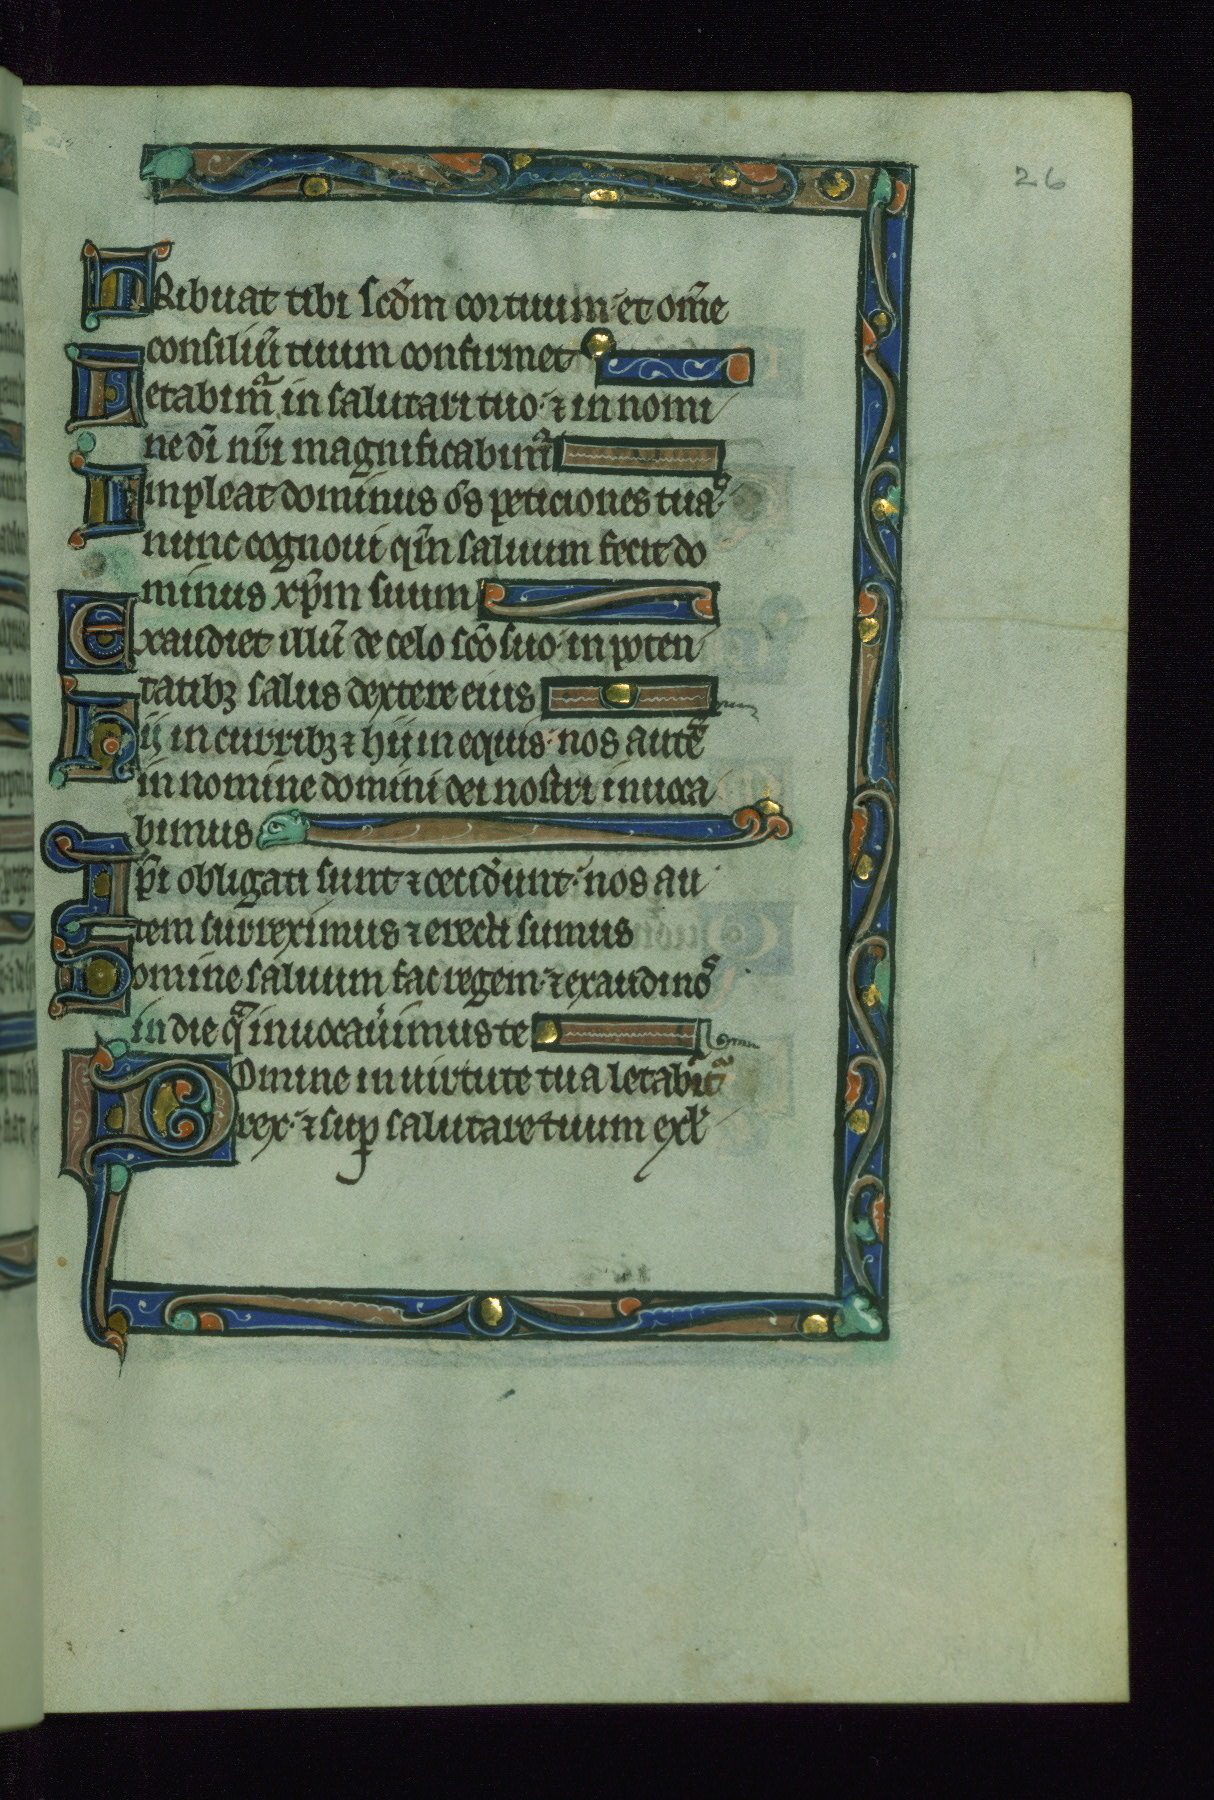 26
TRibuat tibi scd̄m cor tuum· et om̄e
consiliū tuum confirmet
Letabimꝰ in salutari tuo· ⁊ in nomi
ne dī nr̄i magnificabimꝰ
Inpleat dominus om̄s peticiones tuas
nunc cognoui qm̄ saluum fecit do
minus xp̄m suum
Exaudiet illū de celo sc̄o suo· in poten
tatibꝫ salus dextere eius
Hij in curribꝫ ⁊ hij in equis· nos autē
in nomine domini dei nostri inuoca
bimus
Ip̄i obligati sunt ⁊ cecid̓unt· nos au
tem surreximus ⁊ erecti sumus
Domine saluum fac regem· ⁊ exaudi nos
in die qᵃ inuocau̓imus te
DOmine in uirtute tua letabit᷑
rex· ⁊ suꝑ salutare tuum exl̓